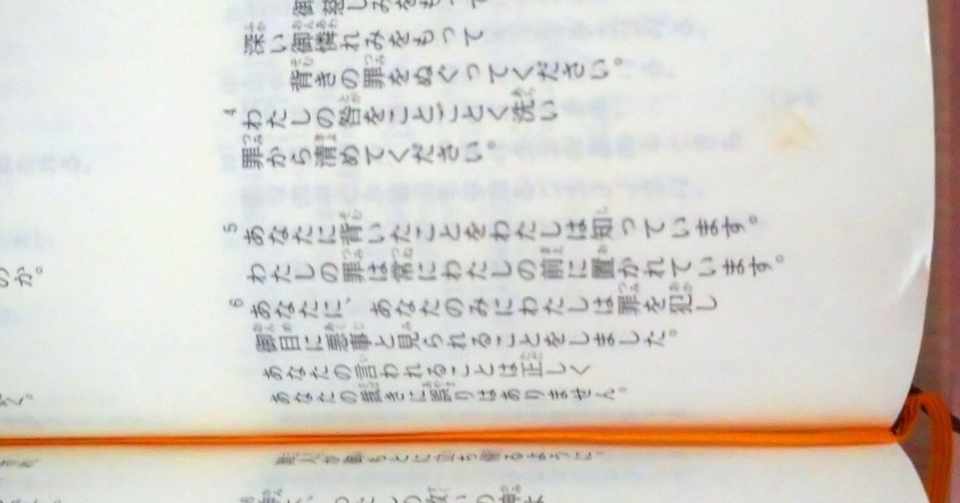 深い御憐れみをもって
背きの罪をぬぐってください。
4 わたしの咎をことごとく洗い
罪から清めてください。
5 あなたに背いたことをわたしは知っています。
わたしの罪は常にわたしの前に置かれています。
6 あなたに、あなたのみにわたしは罪を犯し
御目に悪事と見られることをしました。
あなたの言われることは正しく
あなたの裁きに誤りはありません。
のか。
く。